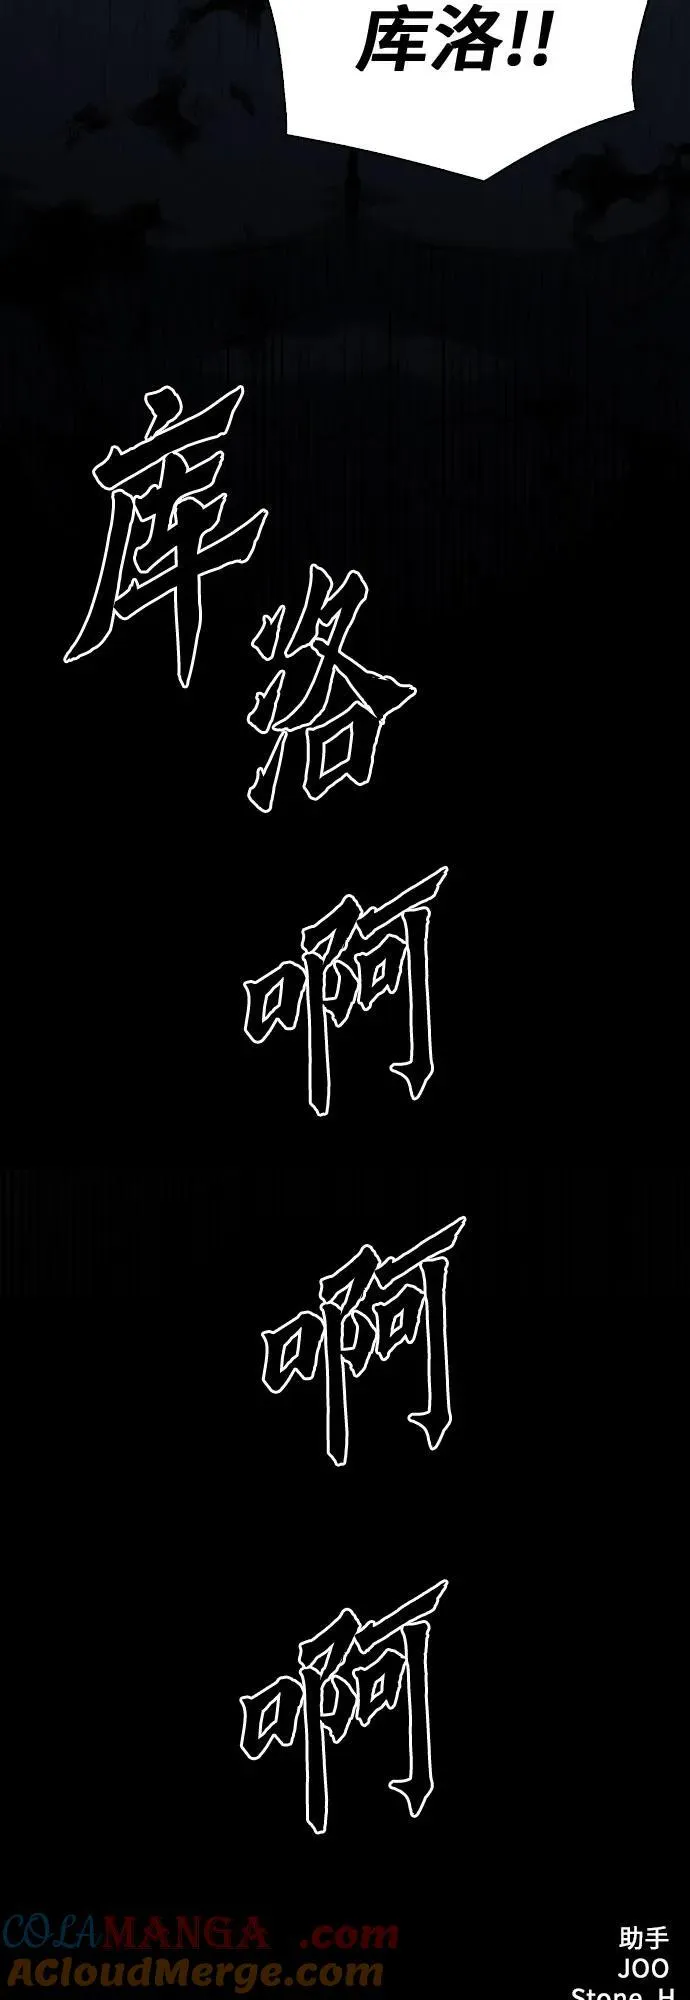 库洛!!
库
洛
啊
啊
啊
COLAMANGA.com
ACloudMerge.com
助手
JOO
Stone_H